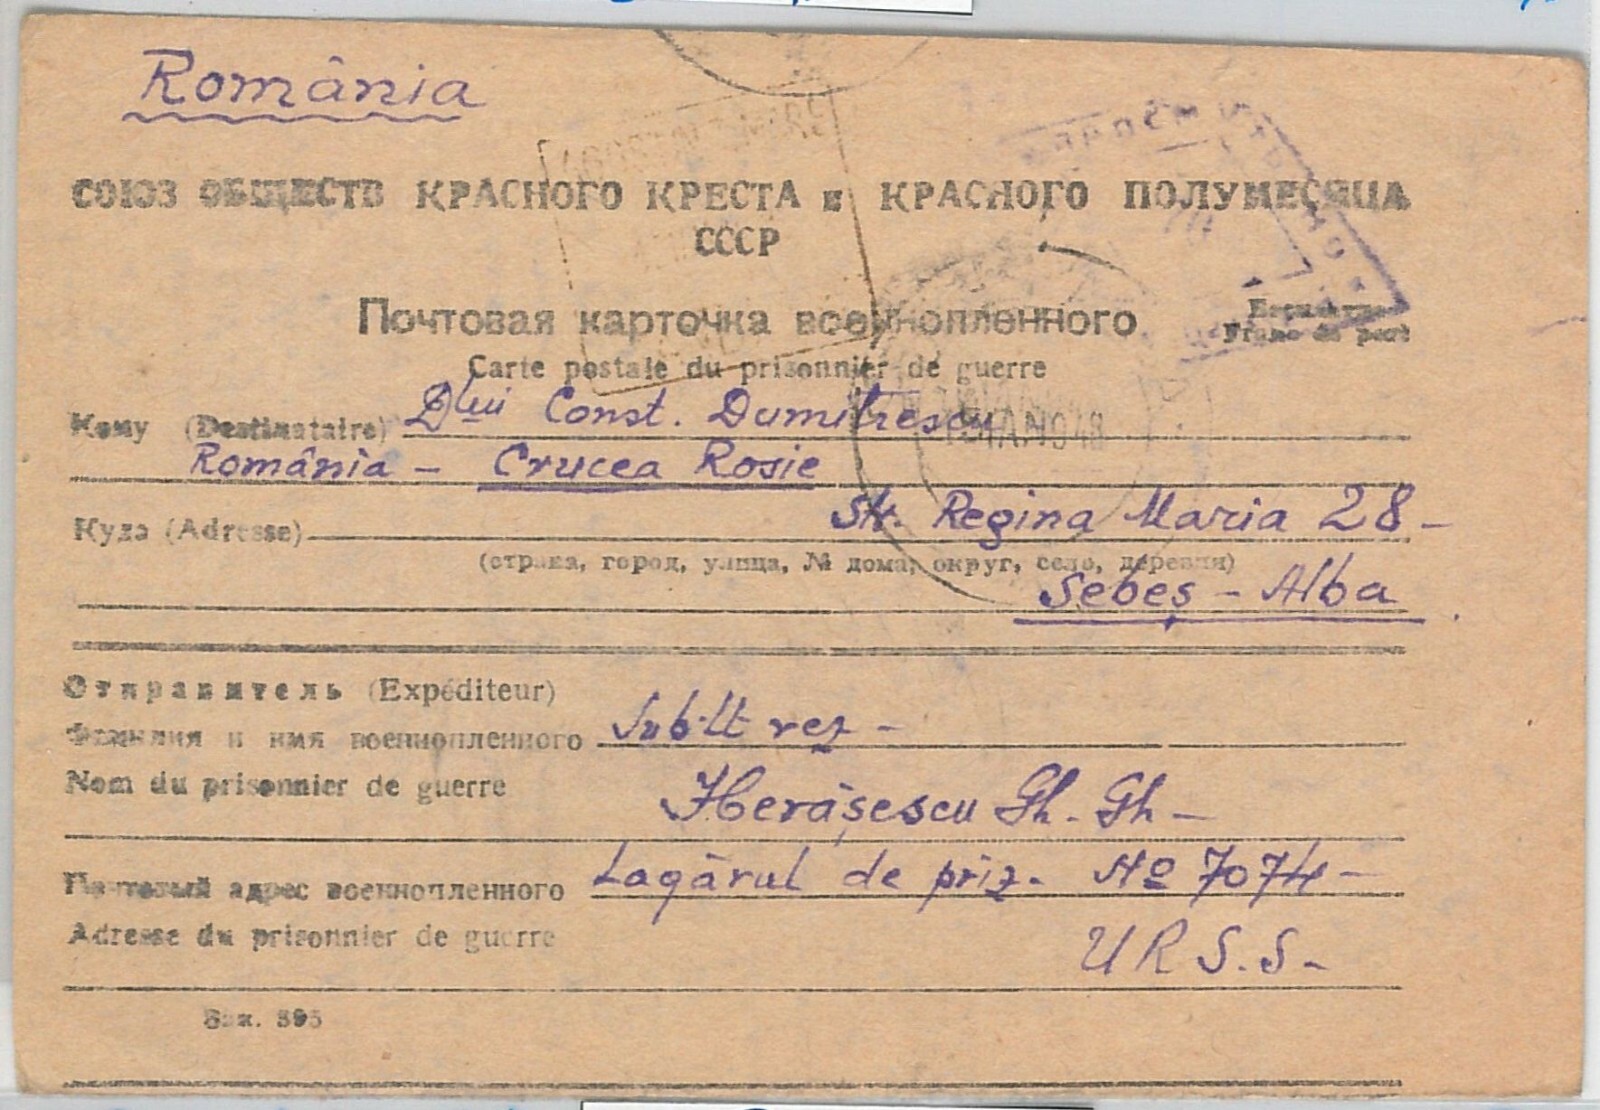 România
СОЮЗ ОБЩЕСТВ КРАСНОГО КРЕСТА и КРАСНОГО ПОЛУМЕСЯЦА
СССР
Почтовая карточка военнопленного
Franc de port
Carte postale du prisonnier de guerre
Кому (Destinataire) Dlui Const. Dumitrescu
România - Crucea Rosie
Куда (Adresse) Str. Regina Maria 28 -
(страна, город, улица, № дома, округ, село, деревня)
Sebeș - Alba
Отправитель (Expéditeur)
Фамилия и имя военнопленного Sub-lt rez -
Nom du prisonnier de guerre
Herășescu Gh. Gh -
Почтовый адрес военнопленного Lagărul de priz. No 7074 -
Adresse du prisonnier de guerre
U R S.S -
Зак. 395